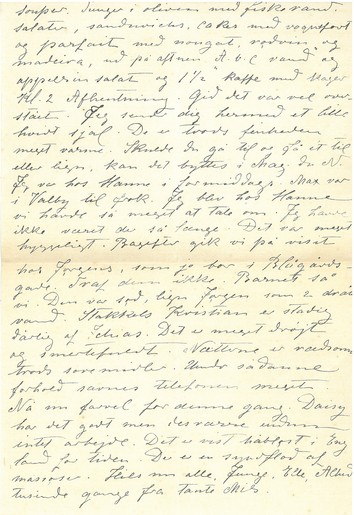 souper. Tunger i oliven med fiskerand.
salater, sandwichs, cakes med roquefort
og parfait med nougat, rødvin og
madeira, ud på aftnen A.b.C vand og
appelsin salat og 1½ kaffe med kager
Kl. 2 Afhentning. Gid det var vel over
stået. Jeg sendte dig hermed et lille
hvidt sjal. De er trods finheden
meget varme. Skulde du gå til og gå et til
eller lign, kan det byttes i Mag. du N.
Jeg var hos Hanne i formiddags. Max var
i Valby til frok. Jeg blev hos Hanne
vi havde så meget at tale om. Jeg havde
ikke været der så længe. Det var meget
hyggeligt. Bagefter gik vi på visit
hos Jørgens, som jo bor i Blågårds-
gade. Traf dem ikke. Barnet så
vi. Den var sød, lign Jørgen som 2 dråber
vand. Stakkels Kristian er stadig
dårlig af Ichias. Det er meget drøjt
og smertefuldt. Nætterne er rædsomme
trods sovemidler. Under sådanne
forhold savnes telefonen meget.
Nå nu farvel for denne gang. Daisy
har det godt men desværre endnu
intet arbejde. Det er vist håbløst i Eng
land for tiden. Der er en syndflod af
massøser. Hils nu alle, Junge, Elle, Alhed
tusinde gange fra tante Mis.